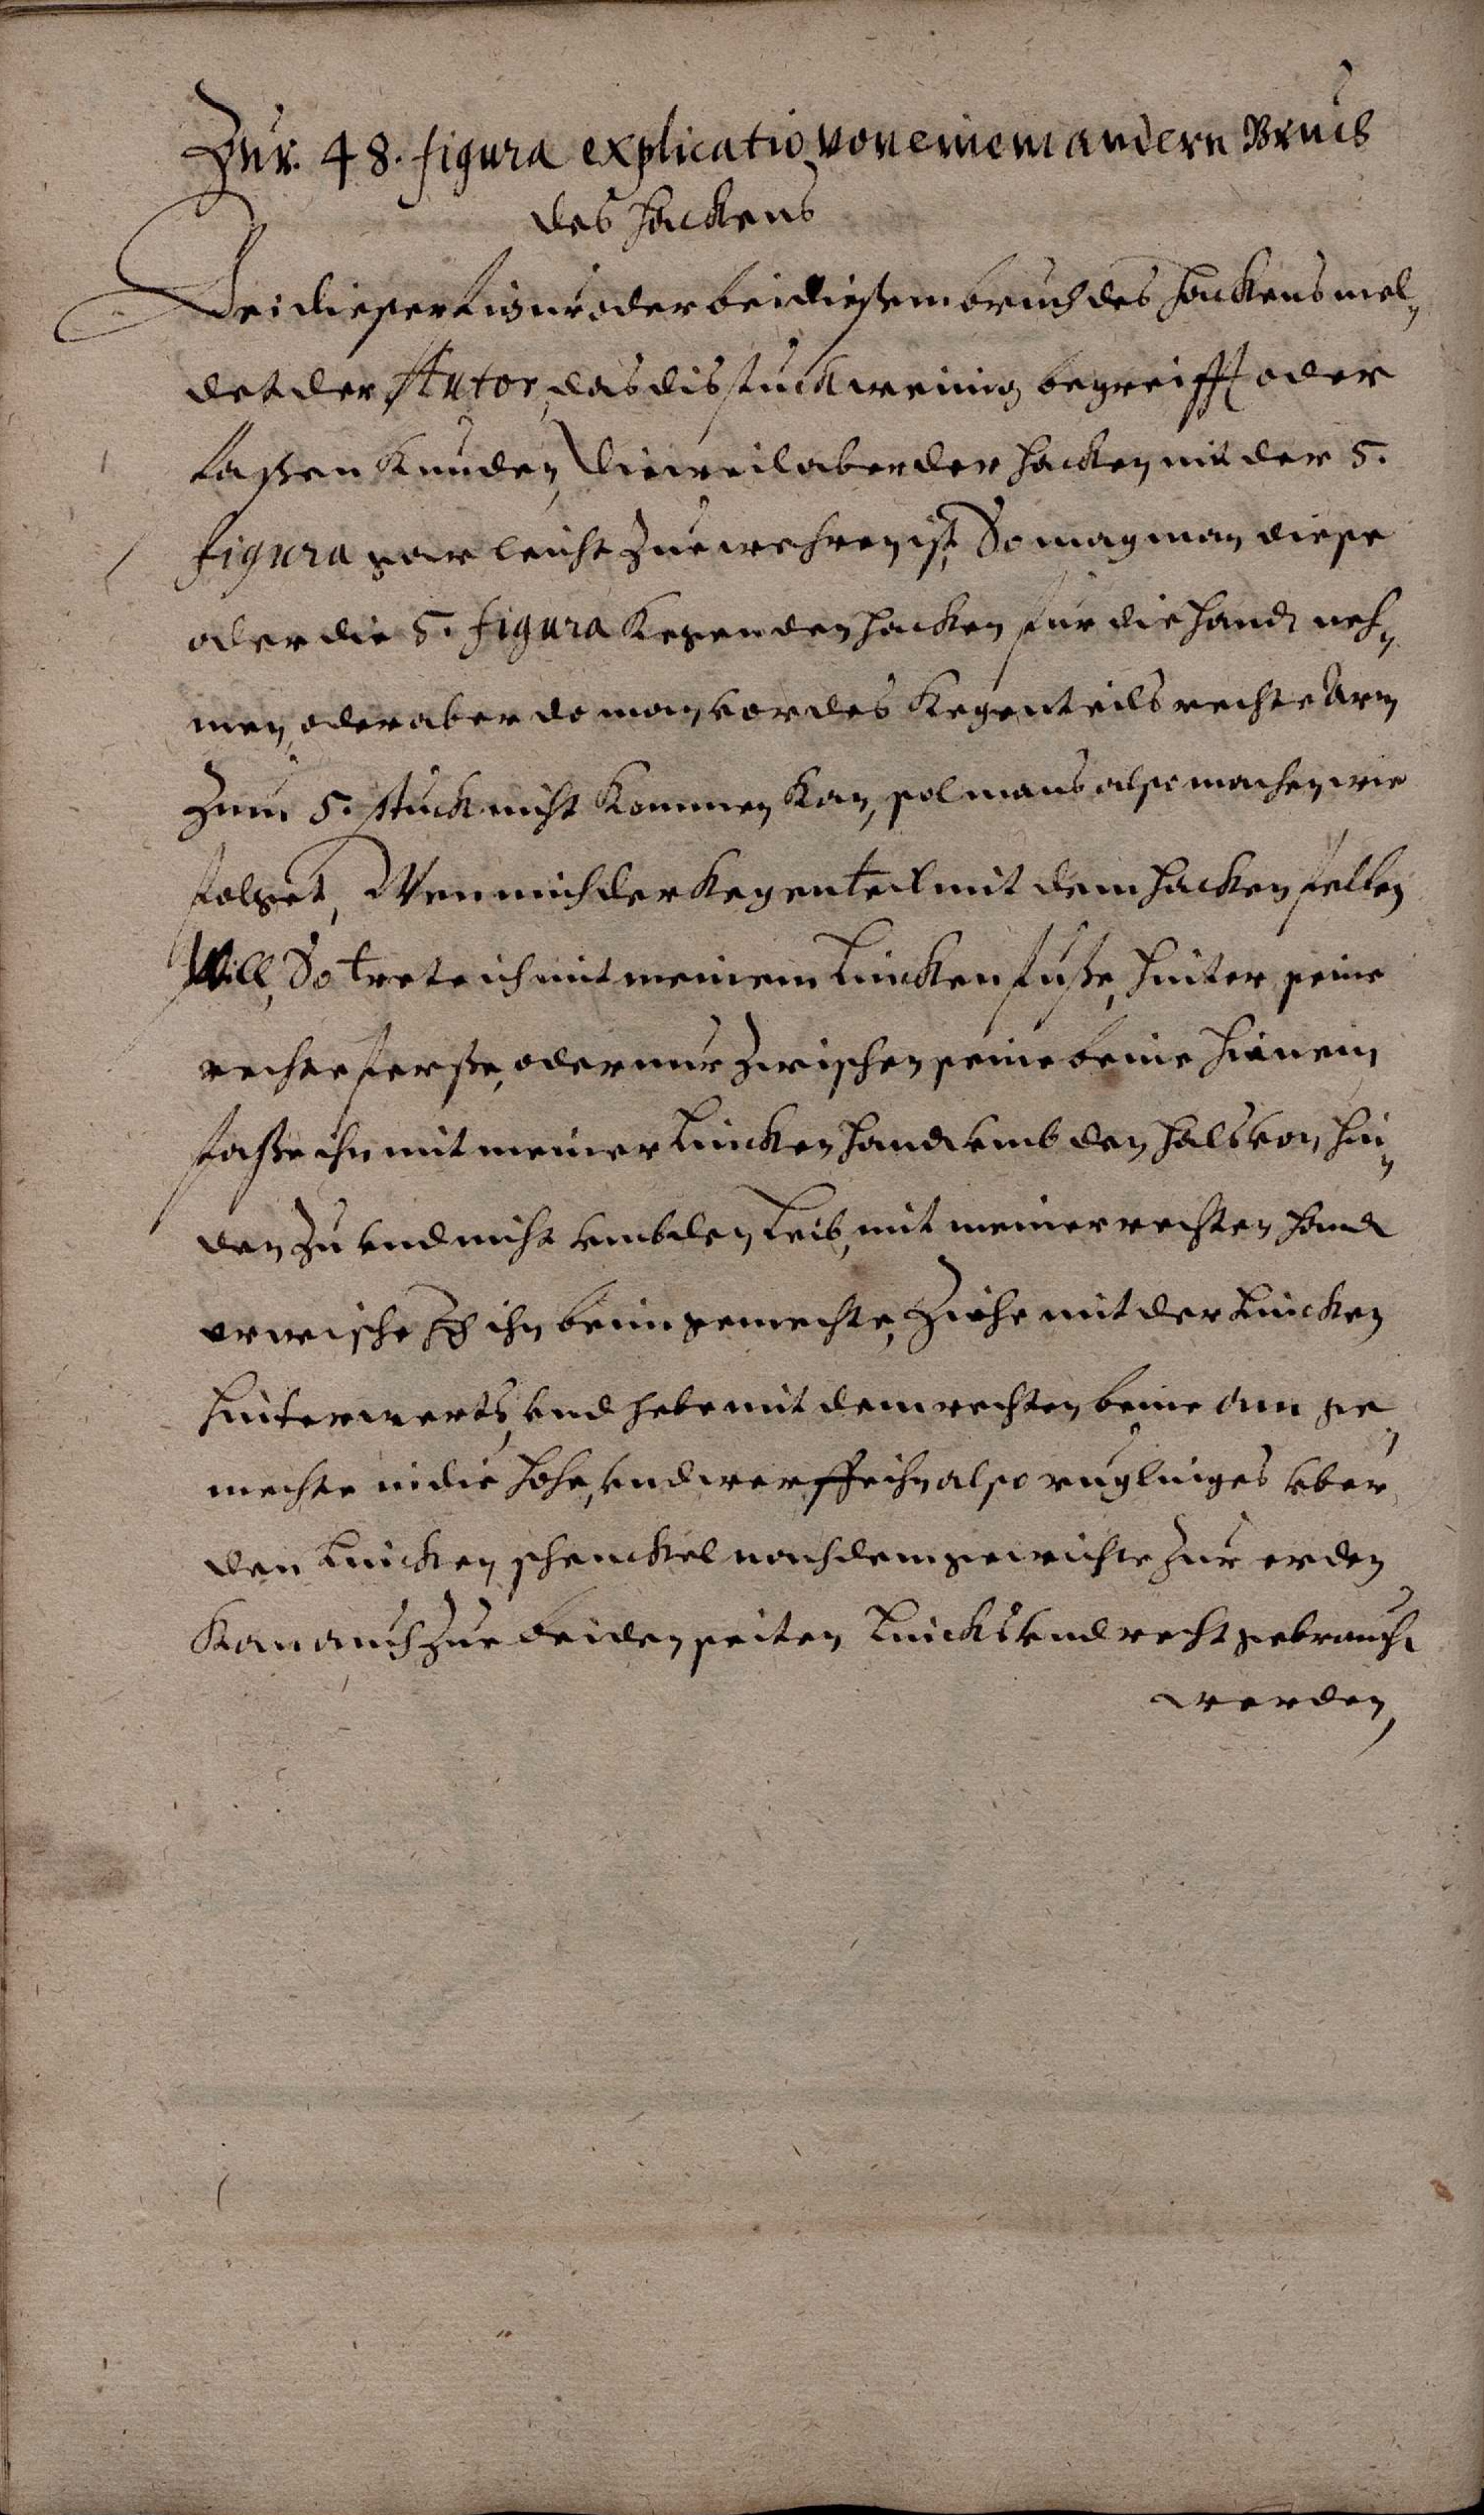 Zur. 48. figura explicatio von einem andern Bruch
des Hackens
Bei dieser Figur oder bei diesem bruch des Hackens mel„
det der Autor, das dis stuck wenig begreifft oder
fassen kunden, Dieweil aber der Hacken mit der 5.
figura gar leicht zu wehren ist, So mag man diese
oder die 5. figura kegen den Hacken für die Handt neh„
men, oder aber do man vor des kegenteils rechte Arm
Zum 5. stuck nicht kommen kan, sol mans also machen wie
folget, Wen mich der kegenteil mit dem Hacken fellen
Will, So trete ich mit meinem Lincken fuße, hinter seine
rechte ferße, oder nur zwischen seine beine hienein
faße ihn mit meiner Lincken Hand umb den Hals von hin„
den zu und nicht umb den Leib, mit meiner rechten Hand
erwische ihn beim gemechte, Ziehe mit der Lincken
hinterwerts, und hebe mit dem rechten beine am ge„
mechte in die höhe, und werffe ihn also ruglinges über
den Lincken schenckel nach dem gewichte zur erden
Kan auch zue beiden seiten Lincks und recht gebraucht
werden,